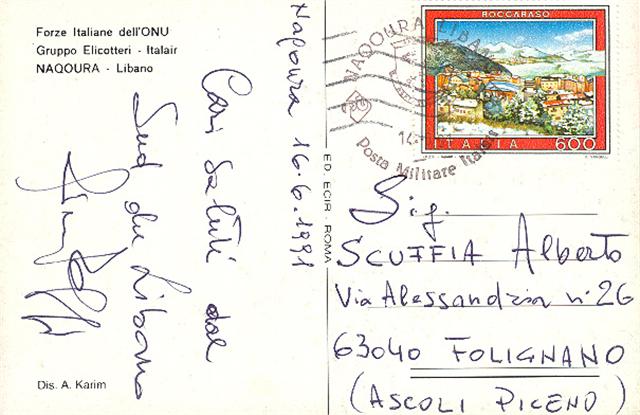 Forze Italiane dell'ONU
Gruppo Elicotteri - Italair
NAQOURA - Libano
Naqoura 16.6.1991
Cari saluti dal
Sud du Libano
Dis. A. Karim
ED. ECIR - ROMA
ROCCARASO
ITALIA 600
NAQOURA LIBA
14
Posta Militare Italia
Sig.
SCUFFIA Alberto
Via Alessandria n° 26
63040 FOLIGNANO
(ASCOLI PICENO)